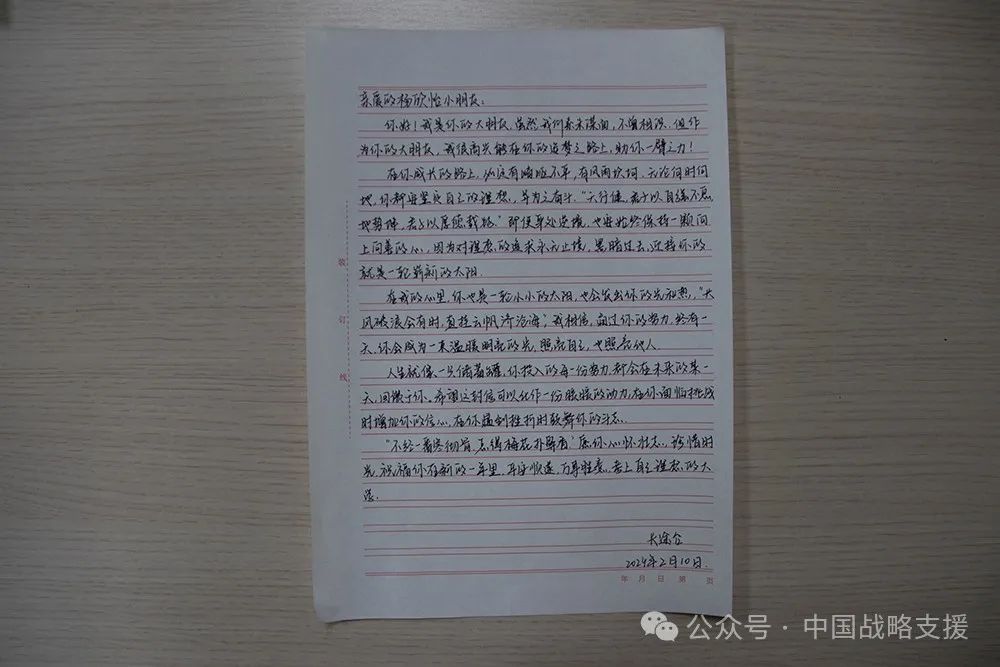 亲爱的杨欣怡小朋友：
你好！我是你的大朋友，虽然我们素未谋面，不曾相识，但作
为你的大朋友，我很高兴能在你的追梦之路上，助你一臂之力！
在你成长的路上，必定有崎岖不平，有风雨坎坷，无论何时何
地，你都要坚定自己的理想，并为之奋斗。“天行健，君子以自强不息，
地势坤，君子以厚德载物。”即使身处逆境，也要始终保持一颗向
上向善的心，因为对理想的追求永无止境，黑暗过去，迎接你的
就是一轮崭新的太阳.
在我的心里，你也是一轮小小的太阳，也会发出你的光和热，“长
风破浪会有时，直挂云帆济沧海”，我相信，通过你的努力，终有一
天，你会成为一束温暖明亮的光，照亮自己，也照亮他人.
人生就像一只储蓄罐，你投入的每一份努力，都会在未来的某一
天，回馈于你。希望这封信可以化作一份暖暖的动力，在你面临挑战
时增加你的信心，在你遇到挫折时鼓舞你的斗志.
“不经一番寒彻骨，怎得梅花扑鼻香”愿你心怀壮志，珍惜时
光，祝福你在新的一年里，平安顺遂，万事胜意，走上自己理想的大
道.
2024年2月10日.
装
订
线
年 月 日 第 页
公众号 · 中国战略支援